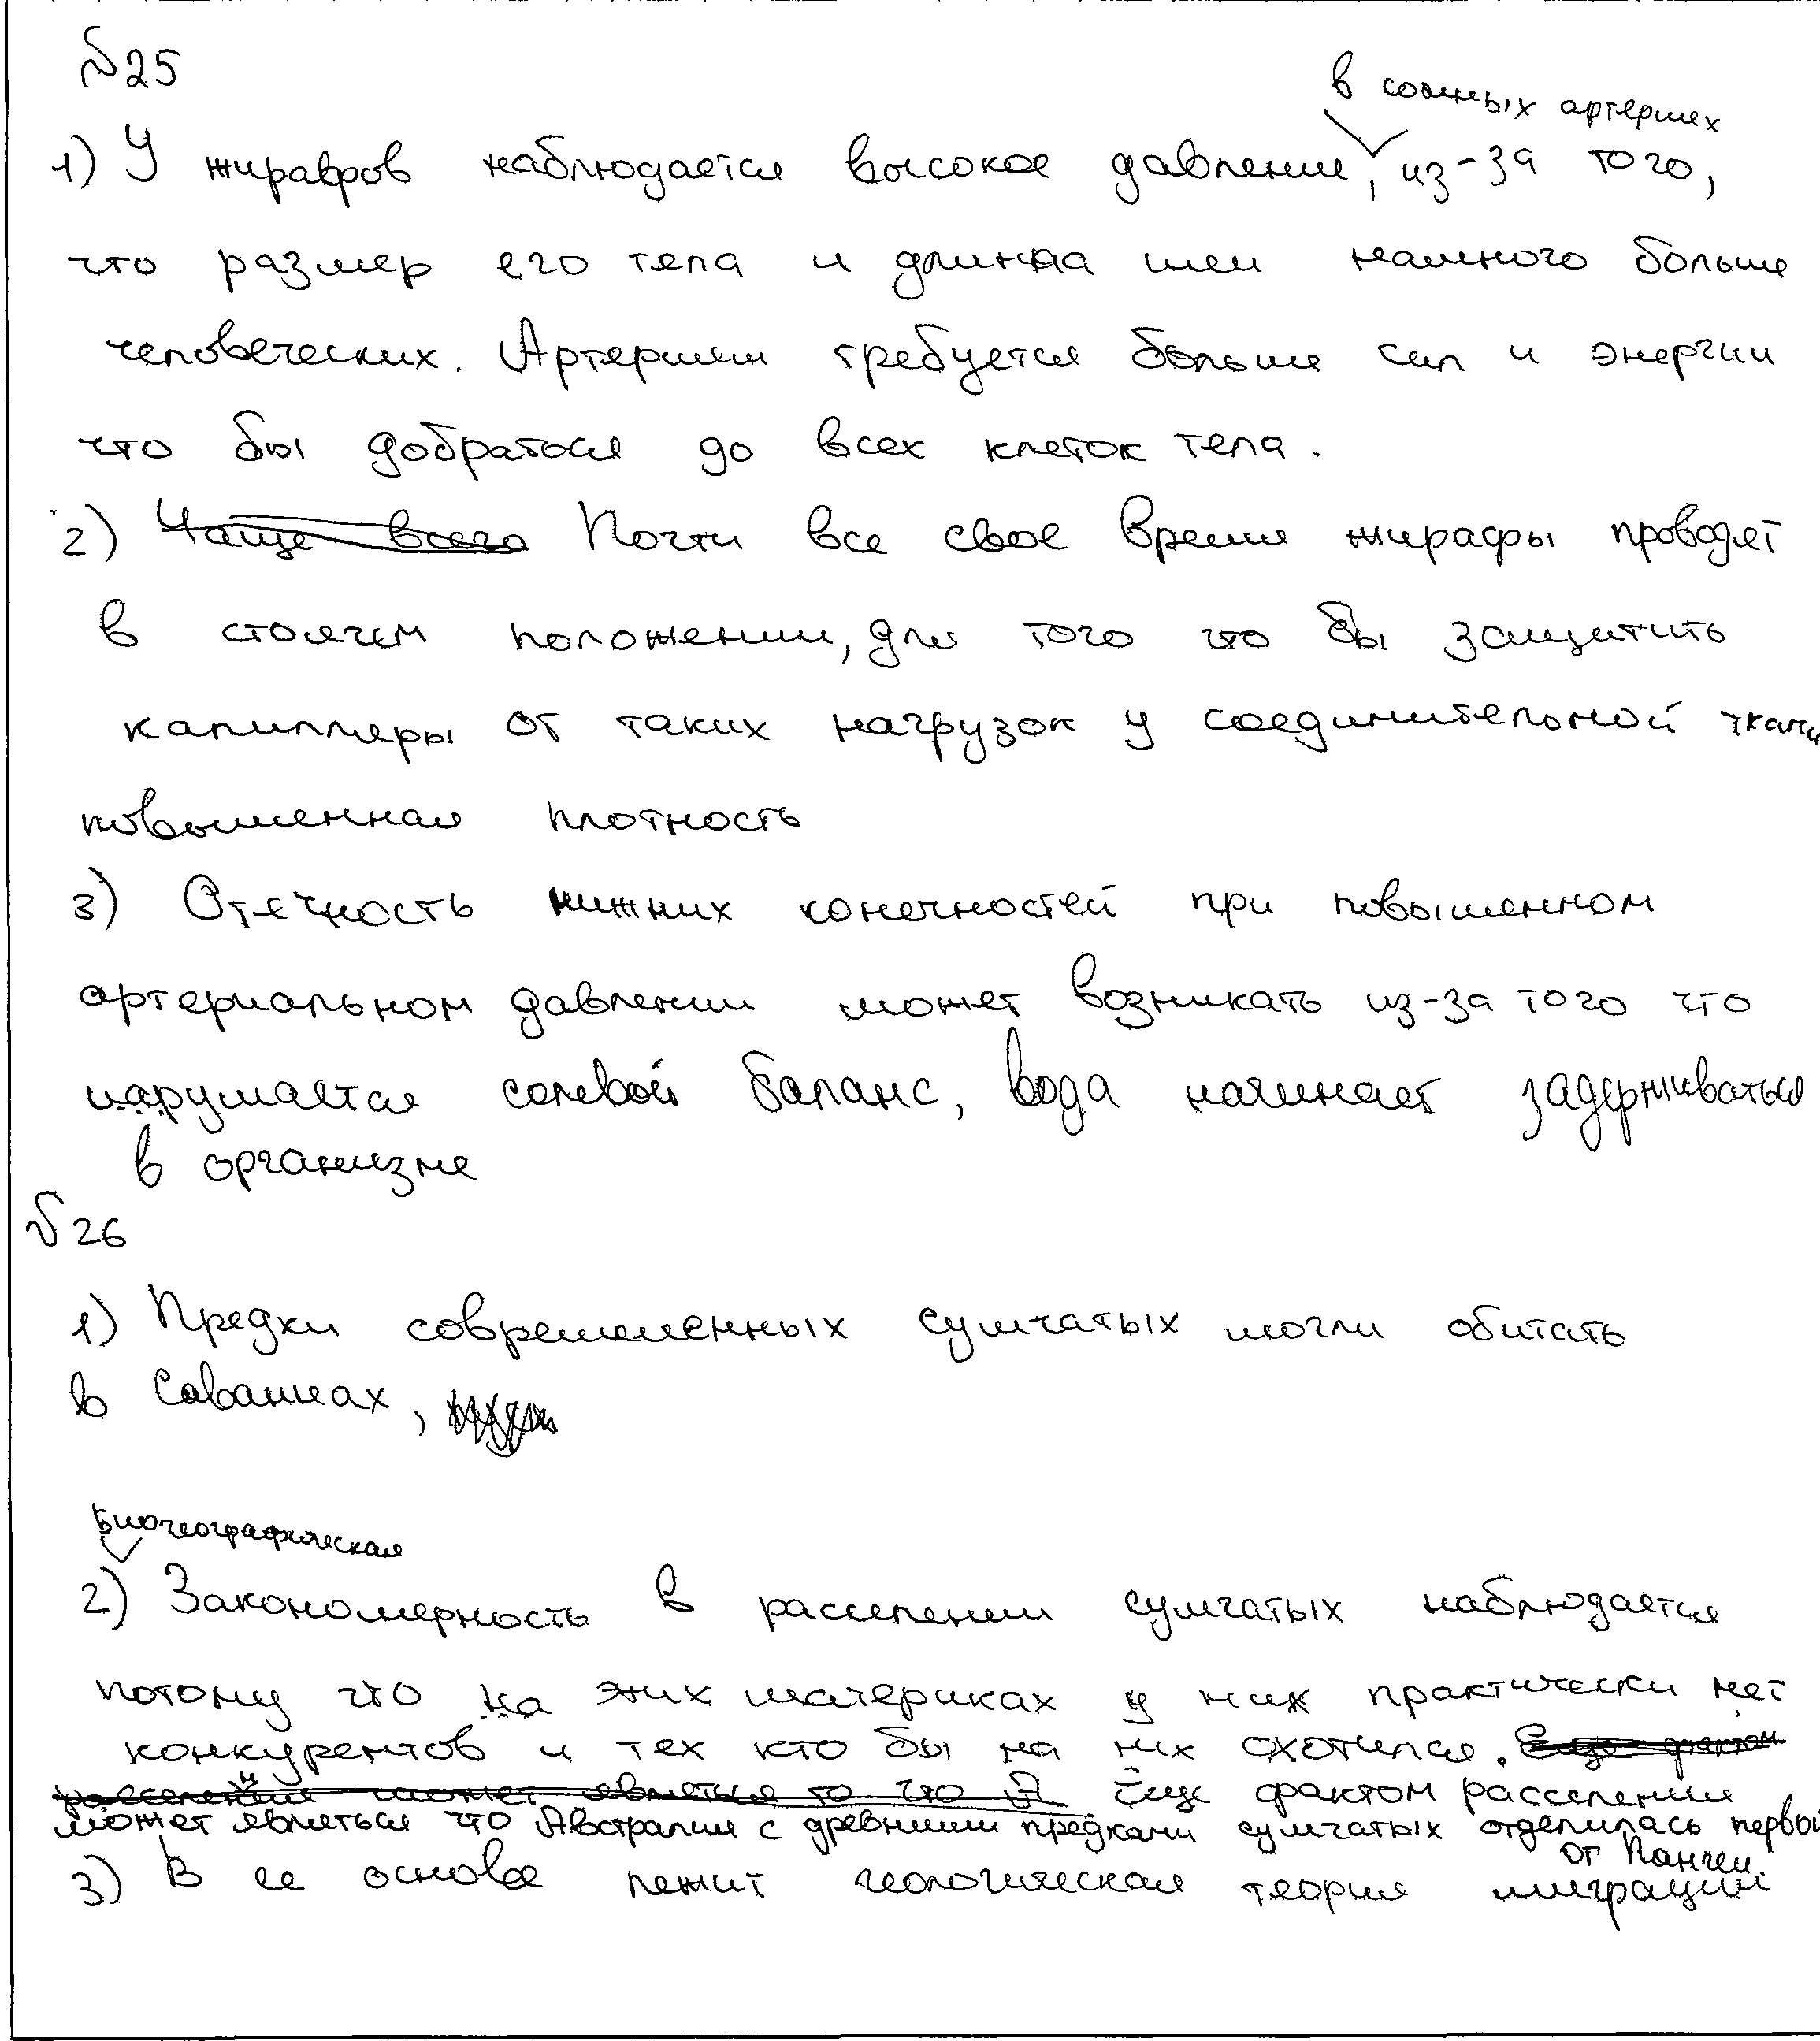 №25
в сонных артериях
1) У жирафров наблюдается высокое давление, из-за того,
что размер его тела и длинна шеи намного больше
человеческих. Артериям требуется больше сил и энергии
что бы добраться до всех клеток тела.
2) Чаще всего Почти все свое время жирафы проводят
в стоячем положении, для того что бы защитить
капилляры от таких нагрузок у соединительной ткани
повышенная плотность
3) Отечность нижних конечностей при повышенном
артериальном давлении может возникать из-за того что
нарушается солевой баланс, вода начинает задерживаться
в организме
№26
1) Предки современных сумчатых могли обитать
в Саваннах,
Биогеографическая
2) Закономерность в расселении сумчатых наблюдается
потому что на этих материках у них практически нет
конкурентов и тех кто бы на них охотился. Еще фактом
расселения может являться то что Еще фактом расселения
может являться что Австралия с древними предками сумчатых отделилась первой
от Пангеи.
3) В ее основе лежит геологическая теория миграции